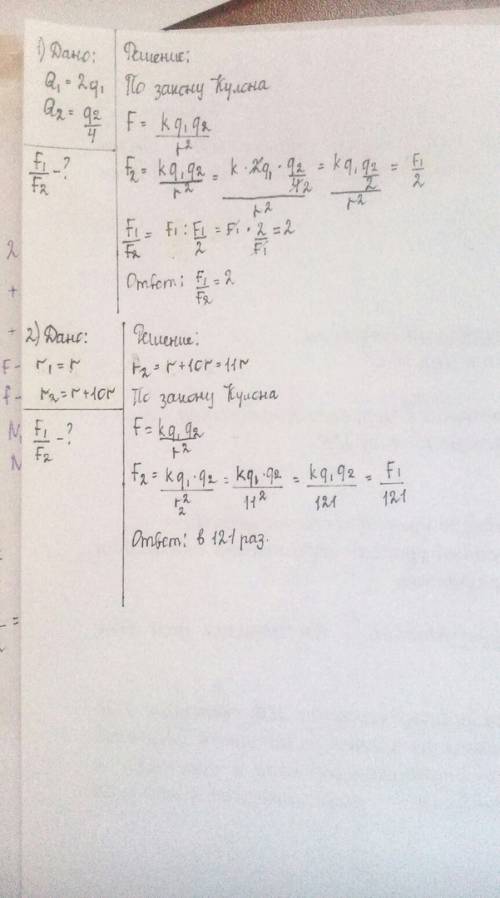 1) Дано:
Q₁ = 2q₁
Q₂ = q₂/4
F₁/F₂ - ?
Решение:
По закону Кулона
F = kq₁q₂/r²
F₂ = kq₁q₂/r² = k · 2q₁ · q₂/4₂/r² = kq₁q₂/2/r² = F₁/2
F₁/F₂ = F₁ : F₁/2 = F₁ · 2/F₁ = 2
Ответ: F₁/F₂ = 2
2) Дано:
r₁ = r
r₂ = r + 10r
F₁/F₂ - ?
Решение:
r₂ = r + 10r = 11r
По закону Кулона
F = kq₁q₂/r²
F₂ = kq₁ · q₂/r₂² = kq₁ · q₂/11² = kq₁q₂/121 = F₁/121
Ответ: в 121 раз.